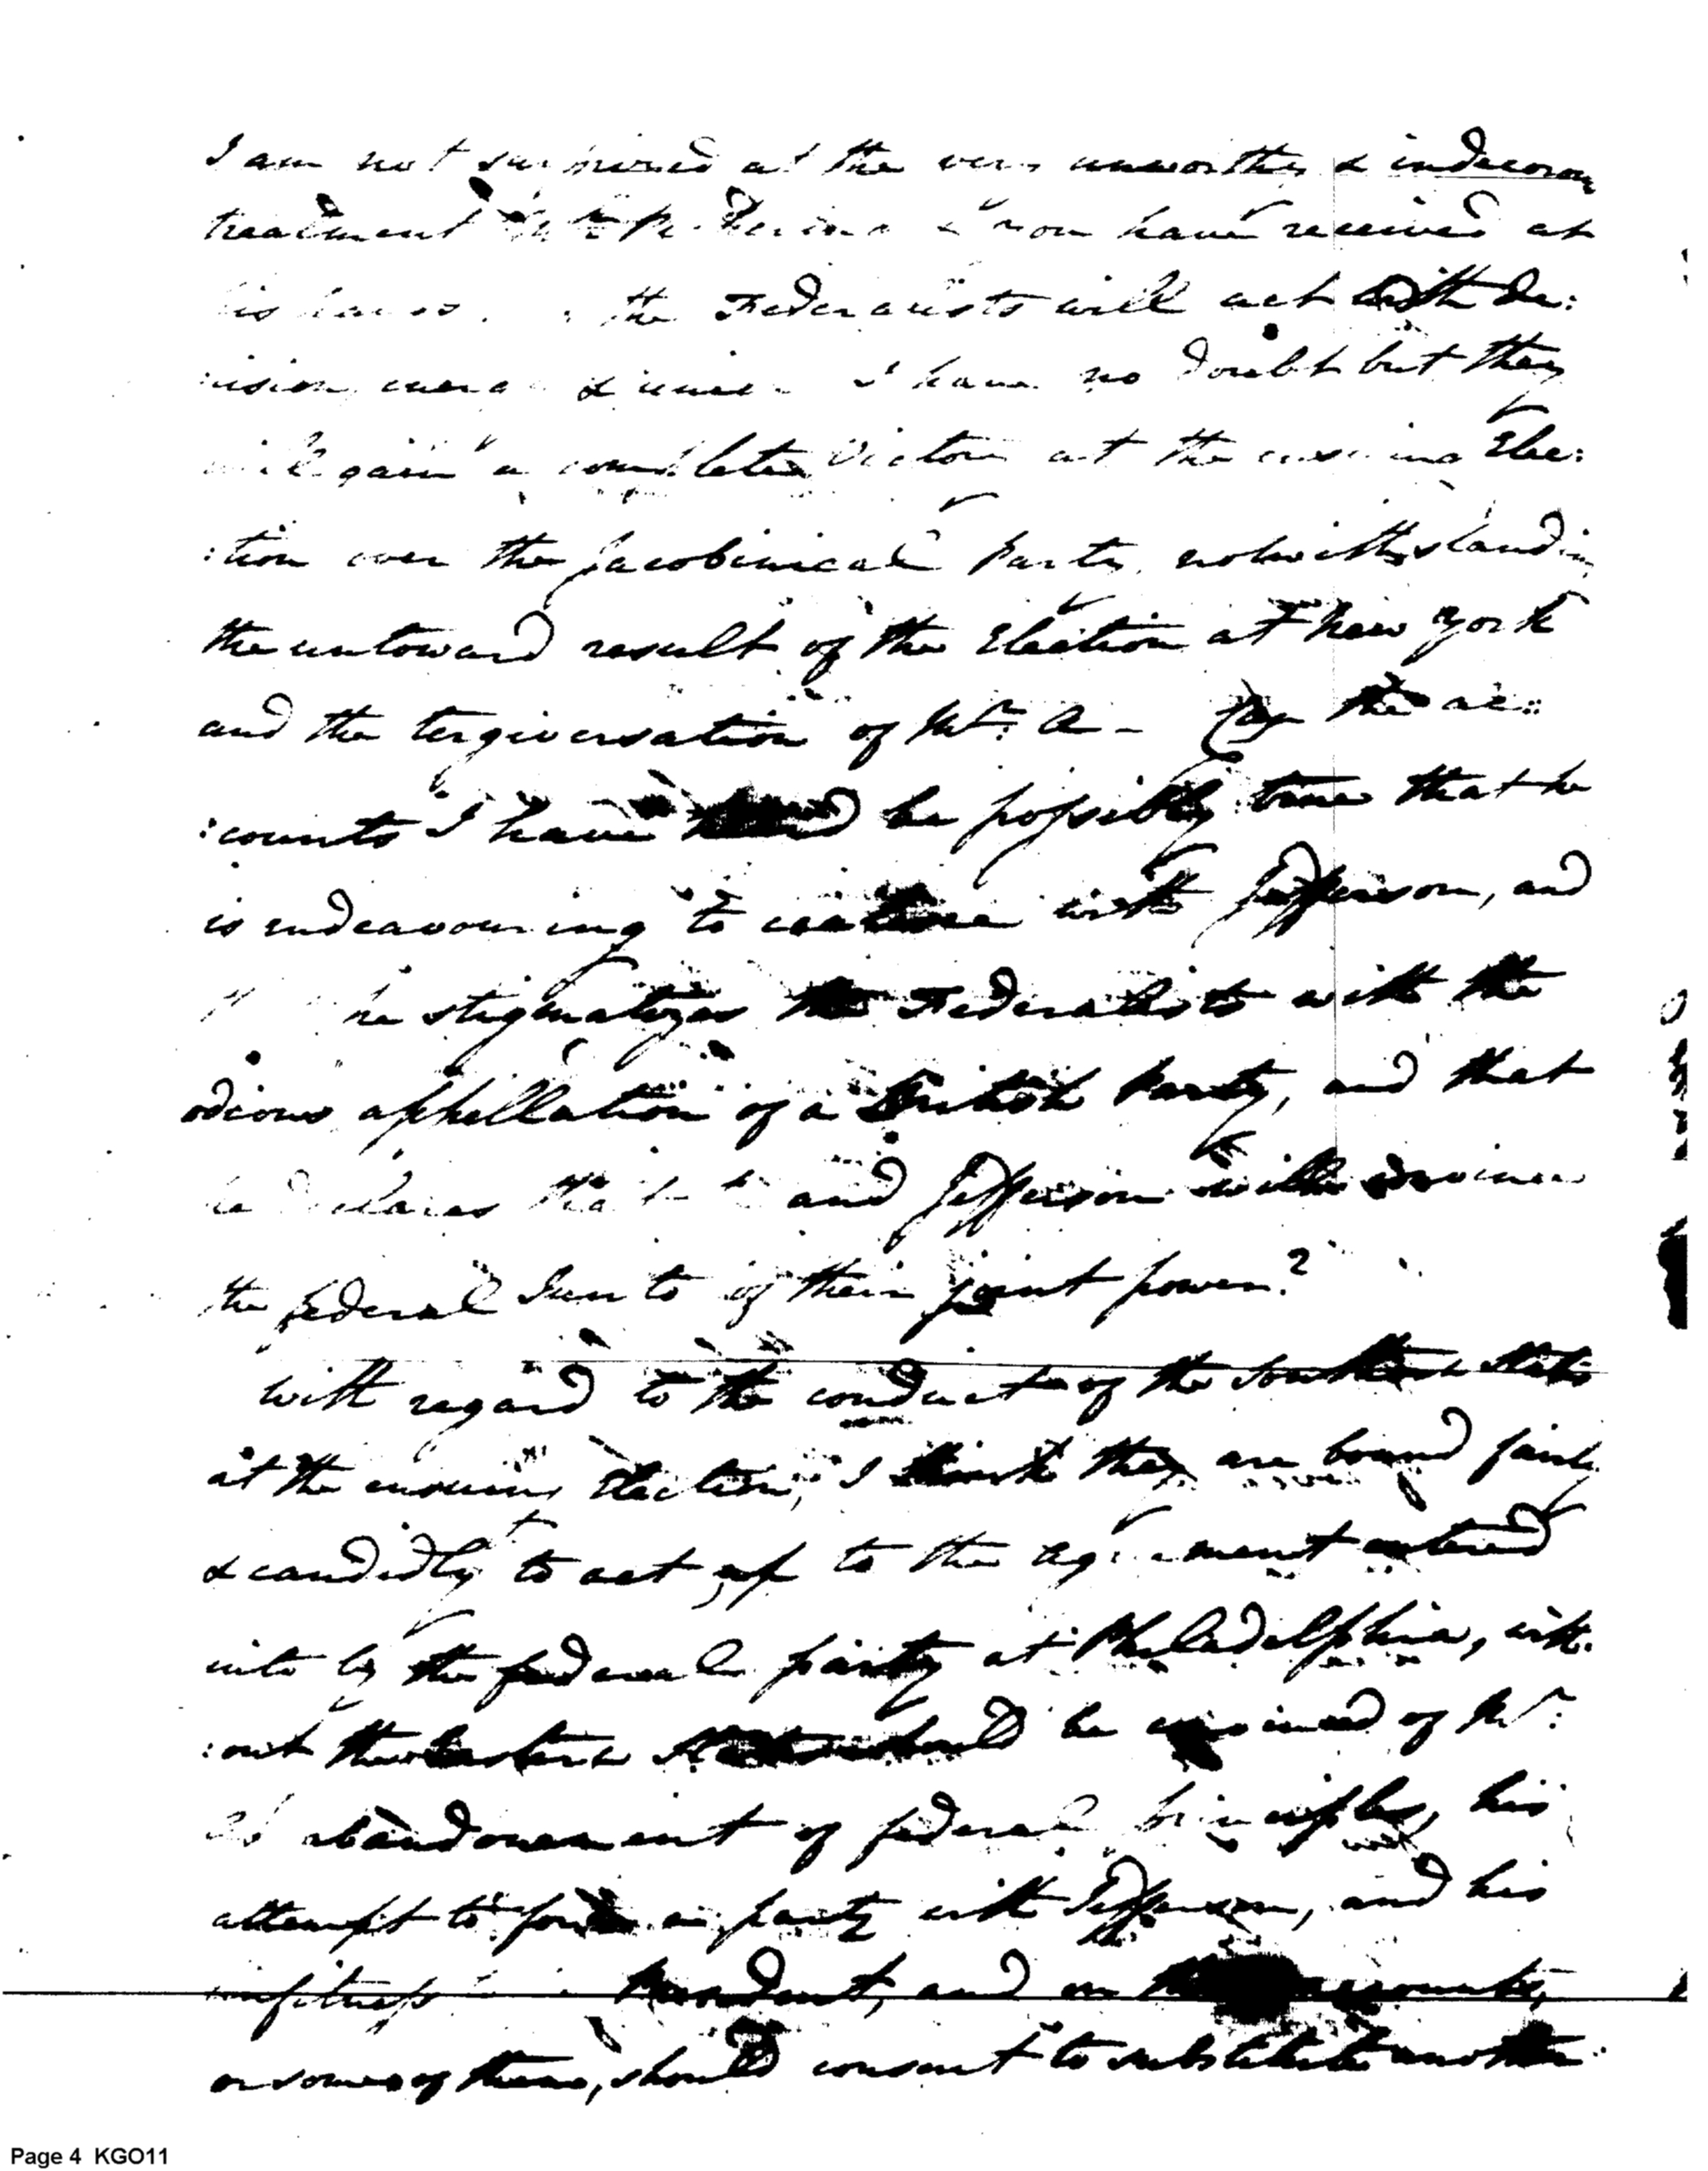 I am not surprised at the very unworthy & indecorous
treatment Mr. Pickering & you have received at
his hands. the Federalists will act with de:
:cision, energy & union I have no doubt but they
will gain a complete Victory at the ensuing Elec:
:tion over the Jacobinical Party, notwithstanding
the untoward result of the Election at New York
and the tergiversation of Mr: A – the ac:
:counts I have heard be possibly true that he
is endeavouring to coalesce with Jefferson, and
he stigmatizes the Federalists with the
odious appellation of a British Party, and that
he declares that he and Jefferson will convince
the federal Junto of their joint power?
With regard to the conduct of the Southern States
at the ensuing Election, I think they are bound fairly
& candidly to act up to the agreement entered
into by the federal party at Philadelphia, with:
:out the Eastern States should be convinced of Mr:
As abandonment of federal principles, his
attempt to form a party with Jefferson, and his
unfitness to be President, and on these accounts,
or some of them, should consent to substitute another
Page 4 KGO11